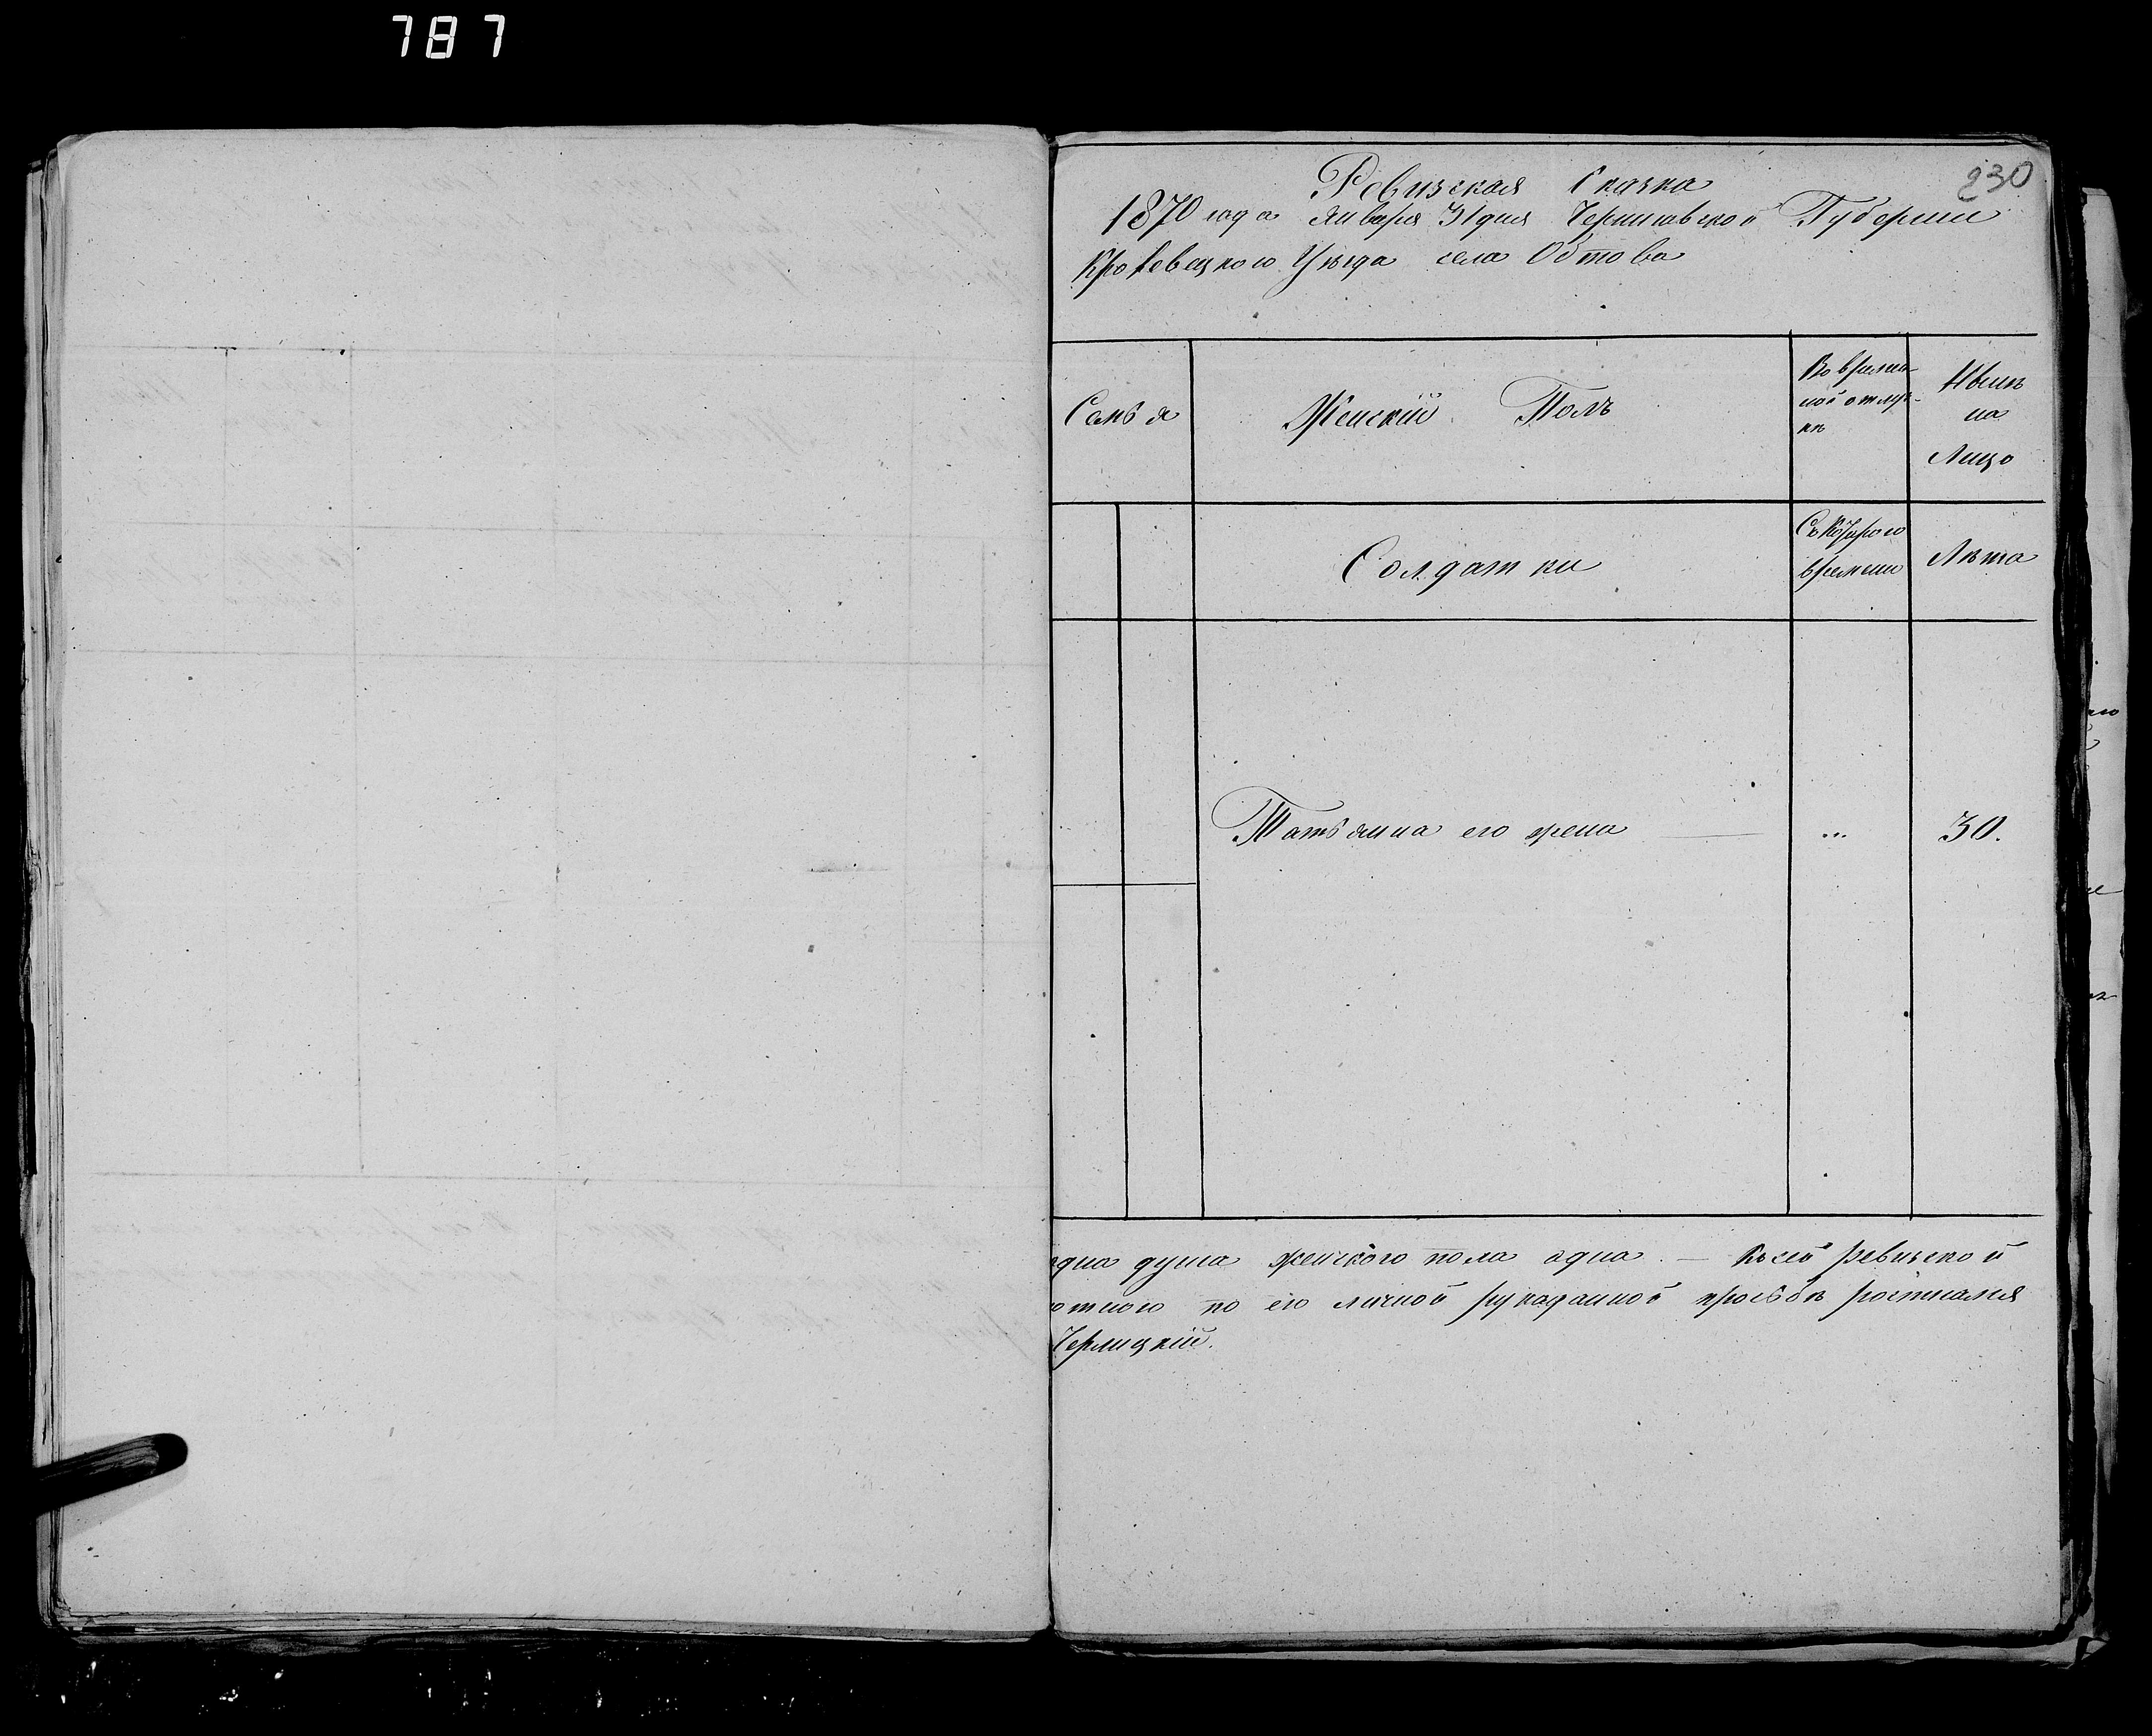 787
230
Ревизская Сказка
1870 года Января 31 дня Черниговской Губернии
Кролевецкого Уѣзда села Обтова
Семья
Женскій Полъ
Во времен-
ной отлуч-
кѣ
Нынѣ
на
Лицо
Солдатки
Съ Котораго
времени
Лѣта
Татьянна его жена ... 30.
одна душа женского пола одна. — Къ сей ревизской
по его личной рукоданной прозьбѣ росписался